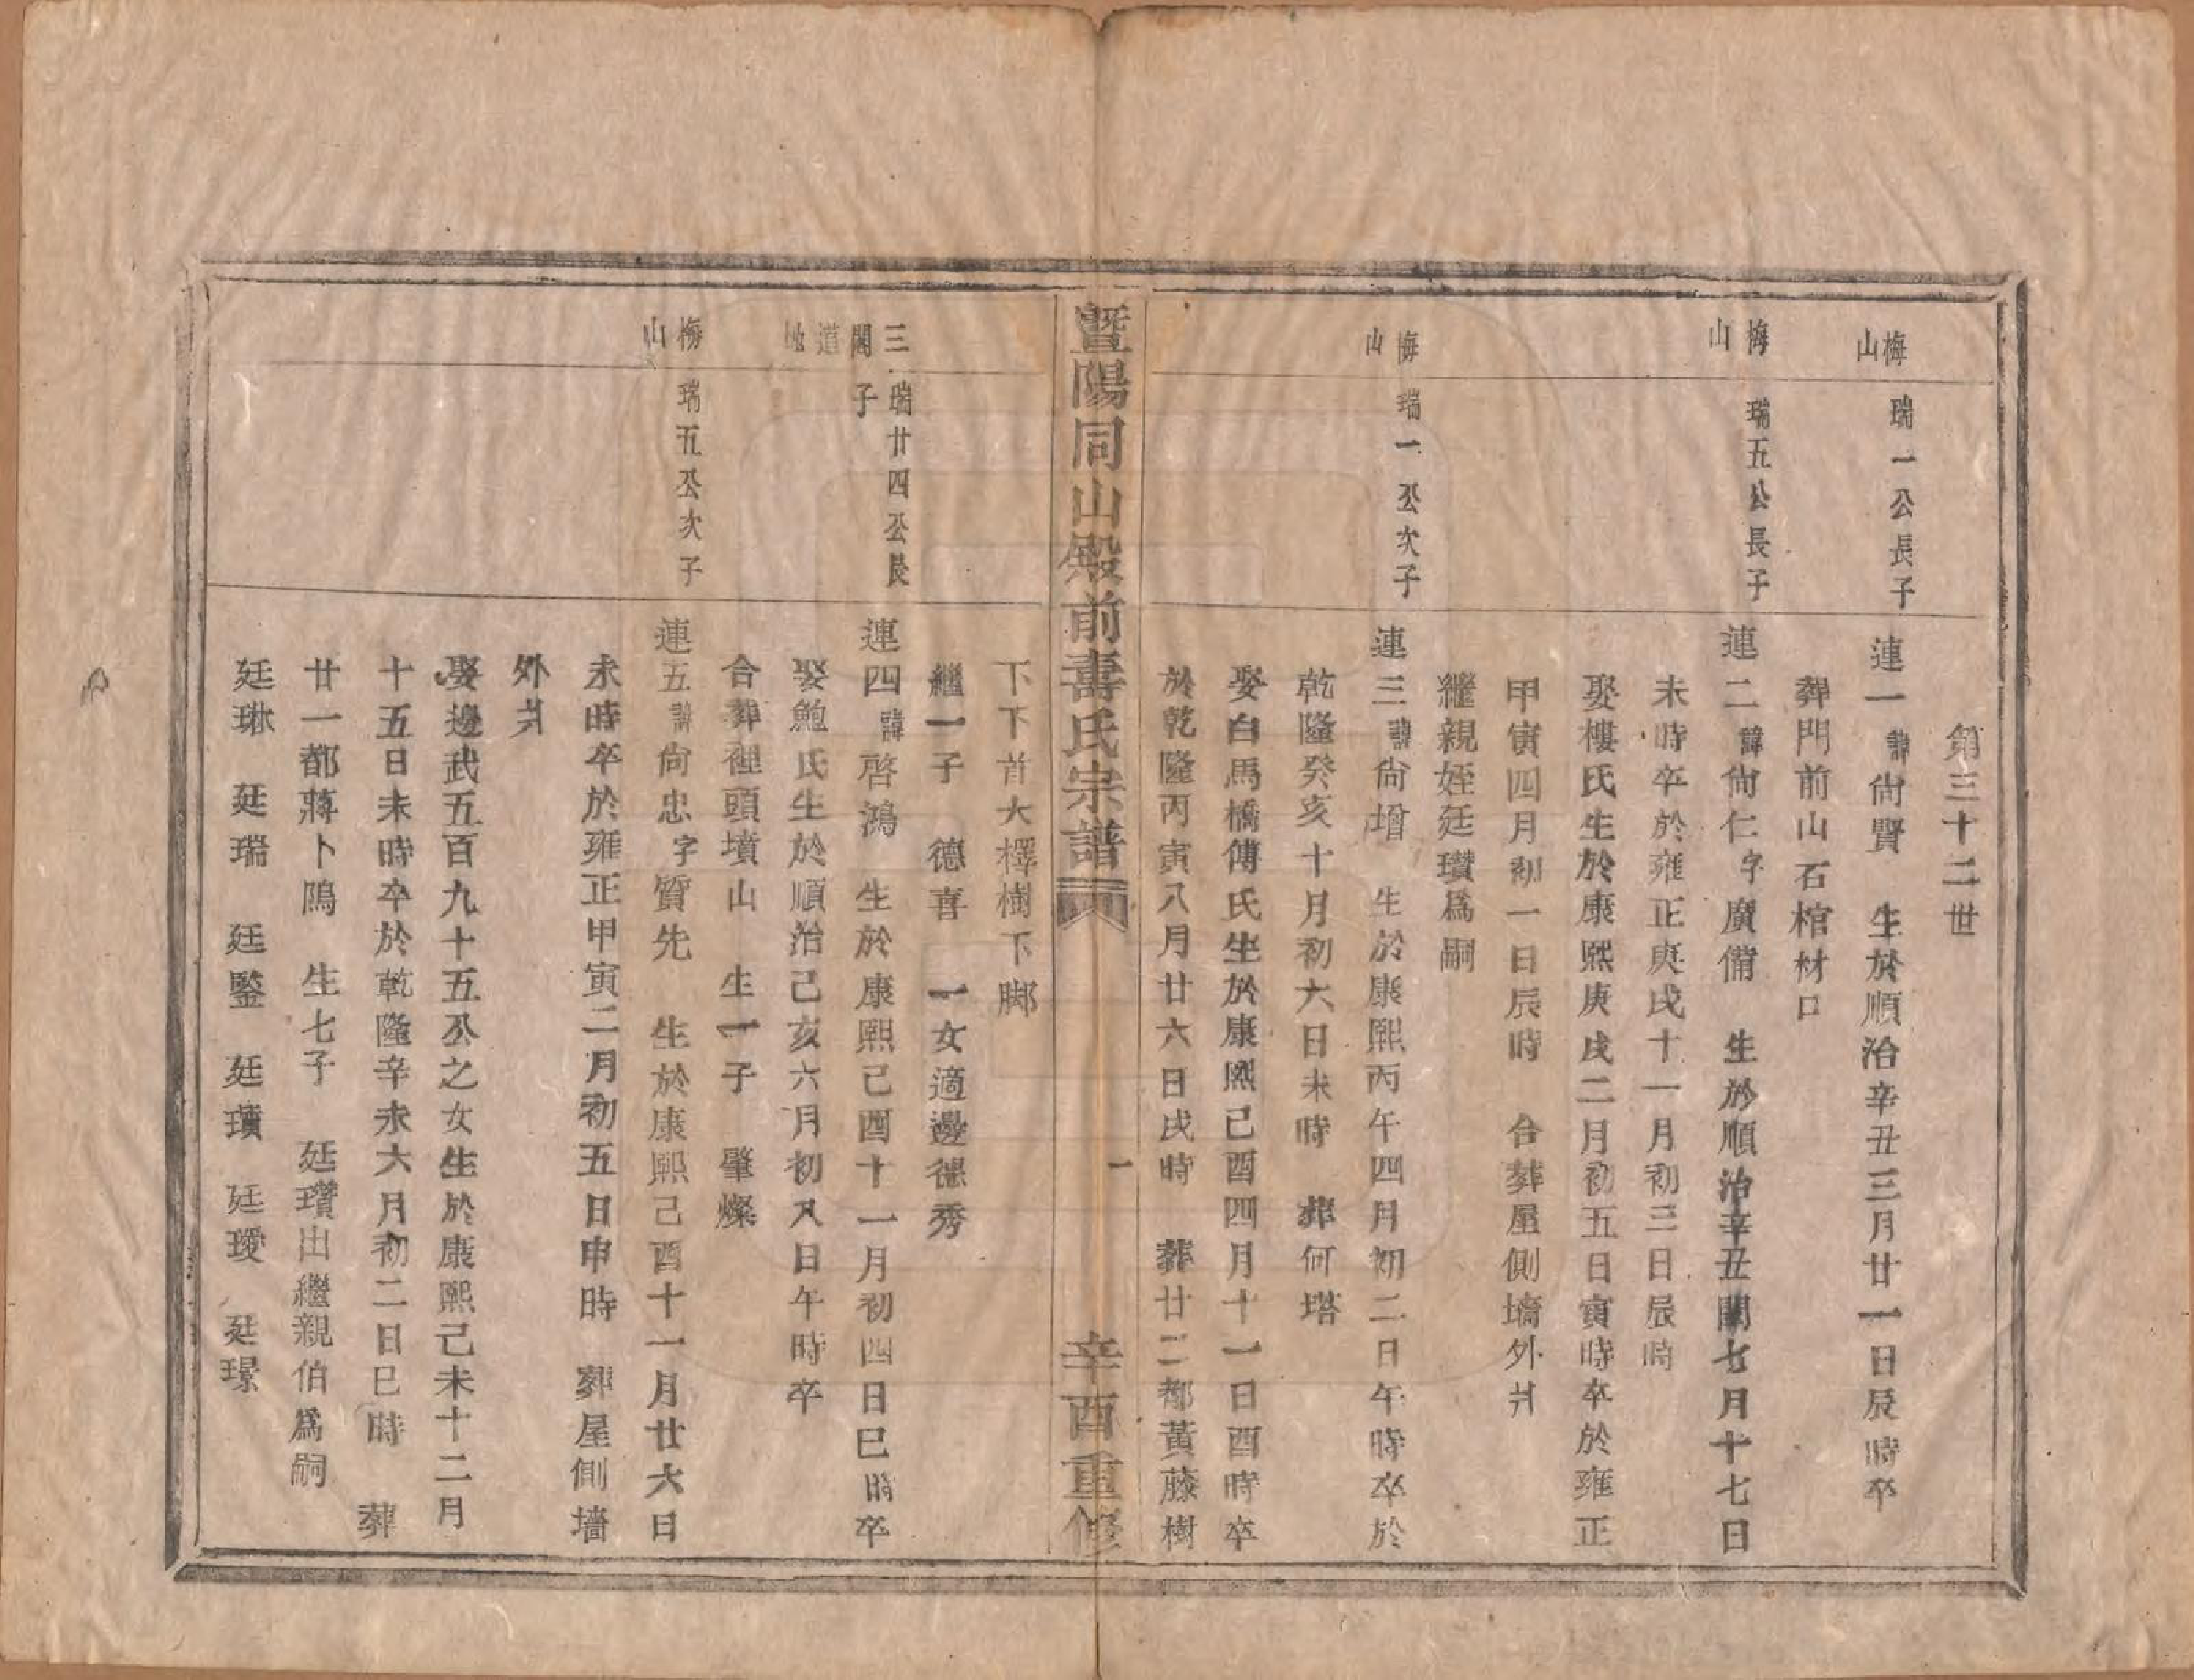 第三十二世
梅山
瑞一公長子
連一諱尙賢　生於順治辛丑三月廿一日辰時卒
葬門前山石棺材口
梅山
瑞五公長子
連二諱尙仁字廣備　生於順治辛丑閏七月十七日
未時卒於雍正庚戌十一月初三日辰時
娶樓氏生於康熙庚戌二月初五日寅時卒於雍正
甲寅四月初一日辰時　合葬屋側墻外爿
繼親姪廷瓚爲嗣
梅山
瑞一公次子
連三諱尙增　生於康熙丙午四月初二日午時卒於
乾隆癸亥十月初六日未時　葬何塔
娶白馬橋傅氏生於康熙己酉四月十一日酉時卒
於乾隆丙寅八月廿六日戌時　葬廿二都黃藤樹
暨陽同山殿前壽氏宗譜　一　辛酉重修
下下首大檡樹下脚
繼一子　德喜　一女適邊德秀
三閣道地
瑞廿四公長子
連四諱啓鴻　生於康熙己酉十一月初四日巳時卒
娶鮑氏生於順治己亥六月初八日午時卒
合葬裡頭墳山　生一子　肇燦
梅山
瑞五公次子
連五諱尙忠字質先　生於康熙己酉十一月廿六日
未時卒於雍正甲寅二月初五日申時　葬屋側墻
外爿
娶邊武五百九十五公之女生於康熙己未十二月
十五日未時卒於乾隆辛未六月初二日巳時　葬
廿一都蔣卜隖　生七子　廷瓚出繼親伯爲嗣
廷琳　廷瑞　廷鑒　廷璜　廷璦　廷璟